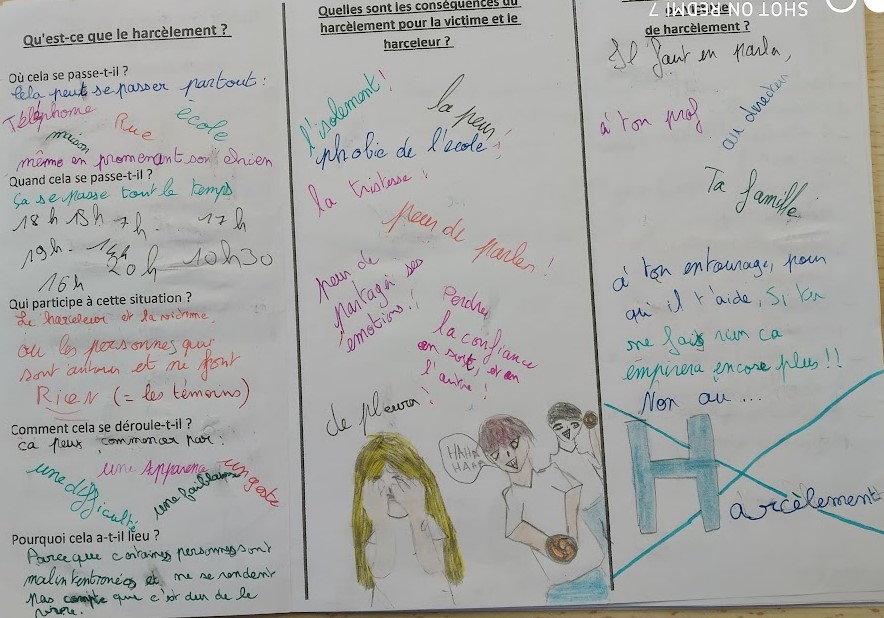 Qu'est-ce que le harcèlement ?
Où cela se passe-t-il ?
Cela peut se passer partout :
Téléphone
maison
Rue
école
même en promenant son chien
Quand cela se passe-t-il ?
Ça se passe tout le temps
18h 15h 7h 17h
19h 14h 20h 10h30
16h
Qui participe à cette situation ?
Le harceleur et la victime
ou les personnes qui
sont autour et ne font
Rien (= les témoins)
Comment cela se déroule-t-il ?
ça peux commencer par :
une difficulté
une Apparence
une faiblesse
un geste
Pourquoi cela a-t-il lieu ?
Parce que certaines personnes sont
malintentionnées et ne se rendent
pas compte que c'est dur de le
vivre.
Quelles sont les conséquences du
harcèlement pour la victime et le
harceleur ?
l'isolement !
la peur
phobie de l'école !
la tristesse !
peur de parler !
peur de
partager ses
émotions !
Perdre
la confiance
en soit, et en
l'autre !
de pleurer !
HAHA
HAHA
de harcèlement ?
Il faut en parler,
à ton prof
au directeur
Ta famille
à ton entourage, pour
qu'il t'aide, Si tu
ne fais rien ca
empirera encore plus !!
Non au ...
Harcèlement
SHOT ON REDMI 7